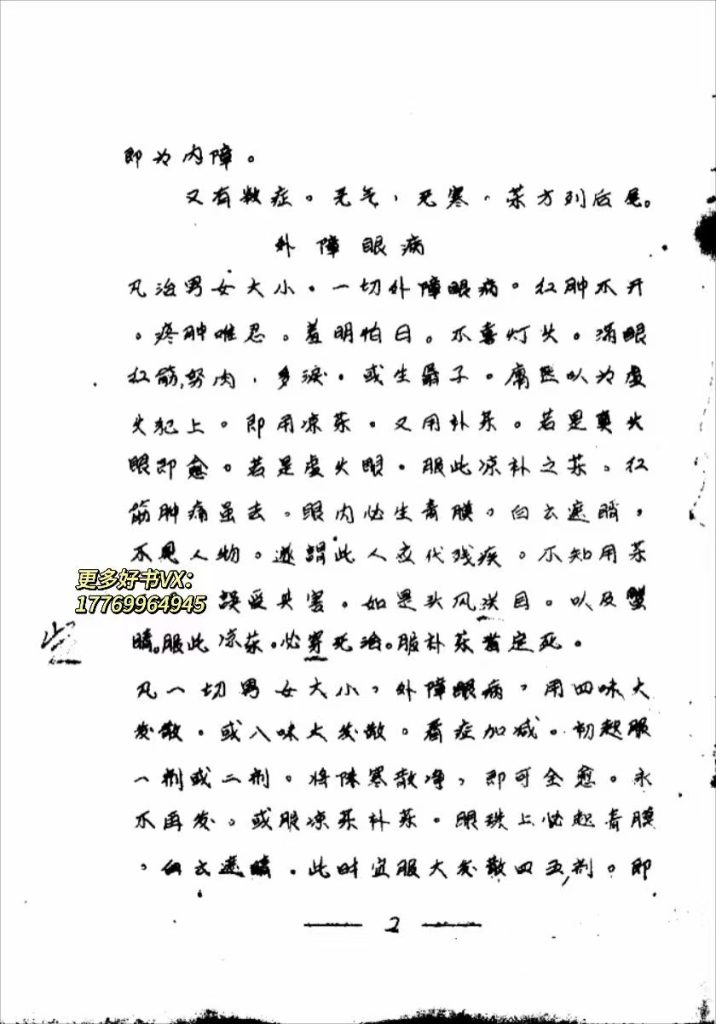 即为内障。
又有数症。无气,无寒,药方列后尾。
外障眼病
凡治男女大小。一切外障眼病。红肿不开
。疼肿难忍。羞明怕日。不喜灯火。满眼
红筋,努肉,多淚。或生翳子。庸医以为虚
火犯上。即用凉药。又用补药。若是真火
眼即愈。若是虚火眼。服此凉补之药。红
筋肿痛虽去。眼内必生青膜。白云遮睛,
不見人物。遂謂此人交代残疾。不知用药
更多好书VX:
17769964945
誤受其害。如是头风淡目。以及蟹
睛。服此凉药。必穿无治。服补药定死。
凡一切男女大小,外障眼病,用四味大
发散。或八味大发散。看症加减。初起服
一剂或二剂。将陈寒散净,即可全愈。永
不再发。或服凉药补药。眼珠上必起青膜
。白云遮睛。此时宜服大发散四五剂。即
2